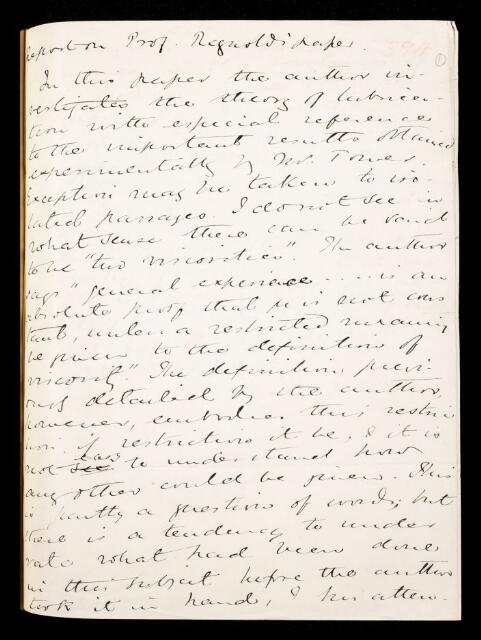 Report on Prof. Reynolds's paper.
394
1
In this paper the author in-
vestigates the theory of lubrica-
tion with especial reference
to the important results obtained
experimentally by Mr. Tower.
Exception may be taken to iso-
lated passages. I do not see in
what sense there can be said
to be "two viscosities". The author
says "general experience .... is an
absolute proof that μ is not cons
tant, unless a restricted meaning
be given to the definition of
viscosity." The definition previ-
ously detailed by the author,
however, embodies this restric
tion if restriction it be, & it is
not see easy to understand how
any other could be given. This
is partly a question of words; but
there is a tendency to under
rate what had been done
in this subject before the author
took it in hand, & his atten-